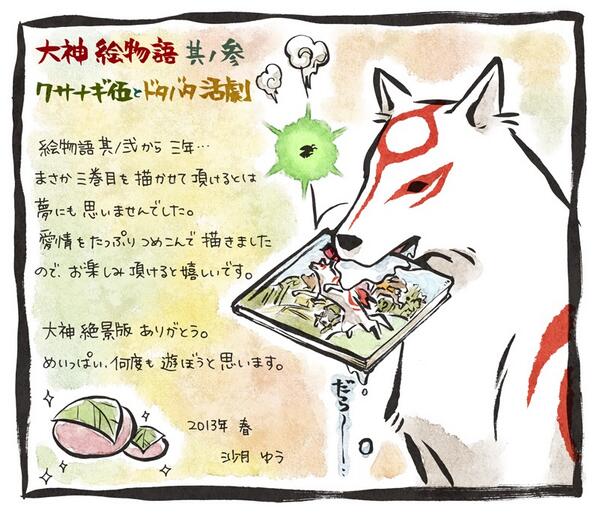 大神 絵物語 其ノ参
クサナギ伍とドタバタ活劇
絵物語 其ノ弐から 三年…
まさか三巻目を描かせて頂けるとは
夢にも思いませんでした。
愛情をたっぷりつめこんで描きました
ので、お楽しみ頂けると嬉しいです。
大神 絶景版 ありがとう。
めいっぱい、何度も遊ぼうと思います。
2013年 春
沙月 ゆう
だら〜〜!